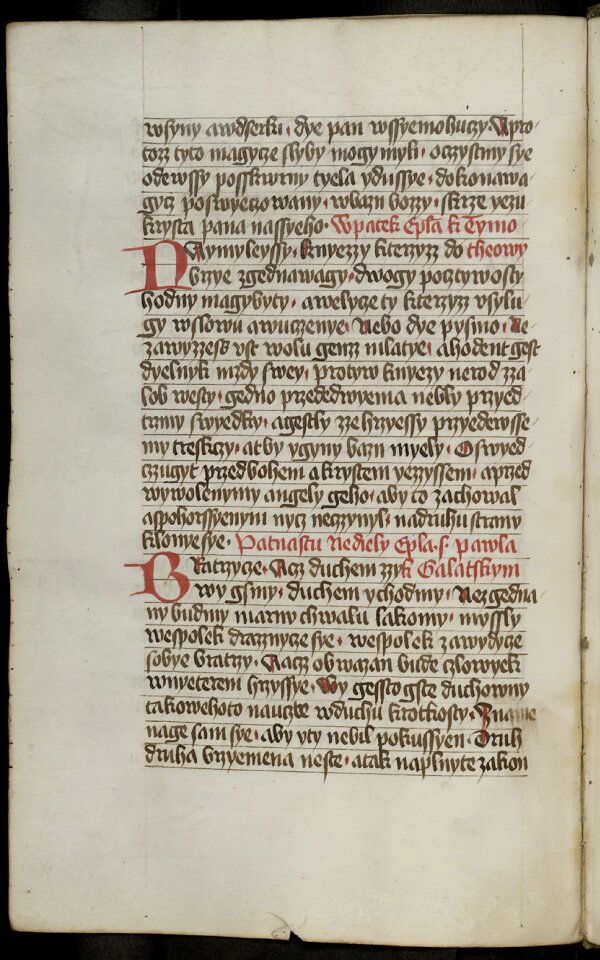 wssyny awdserku · dye pan wssyemohuczy · Apro
tozz tyto magycze slyby mogy myli · oczystmy sye
odewssy posskwrny tyela ydussye · dokonawa
gycz poswyeczowany · wbazni bozzy · skrze yezu
krysta pana nassyeho · Wpatek Epla k Tymo
Naymyleyssy · knyezzy kterzyz do theowy
brzye zgednawagy · dwogy pocztywosty
hodny magybyty · awelycze ty kterzyz vsylu
gy wslowu awuczenye · Nebo dye pysmo · Ne
zawyzzess vst wolu genz mlatye · ahoden t gest
dyelnyk mzdy swey · protyw knyezy nerod zza
lob westy · gedno przededwyema nebly przyed
trzmy swyedky · agestly zze hrzyessy przyedewsse
my treskczy · at by ygyny bazn myely · Oswyed
czugyt przedbohem akrystem yezyssem · aprzed
wywolenymy angely geho · aby to zachowal
aspohorssyenym nycz neczynyl · nadruhu stranu
klonye sye · Patnastu nediely Epla · s · pawla
Bratrzycze · Acz duchem zzy k Galatskym
wy gsmy · duchem ychodmy · Nezgedna
my budmy marny chwalu lakomy · myssly
wespolek drazznycze sye · wespolek zawydycze
sobye bratrzy · Aacz obwazan bude czlowyek
wnyeterem hrzyssye · Wy gessto gste duchowny
takowehoto nauczte wduchu krotkosty · Zname
nage sam sye · aby yty nebil pokussyen · Druh
druha brzyemena neste · atak naplnyte zakon